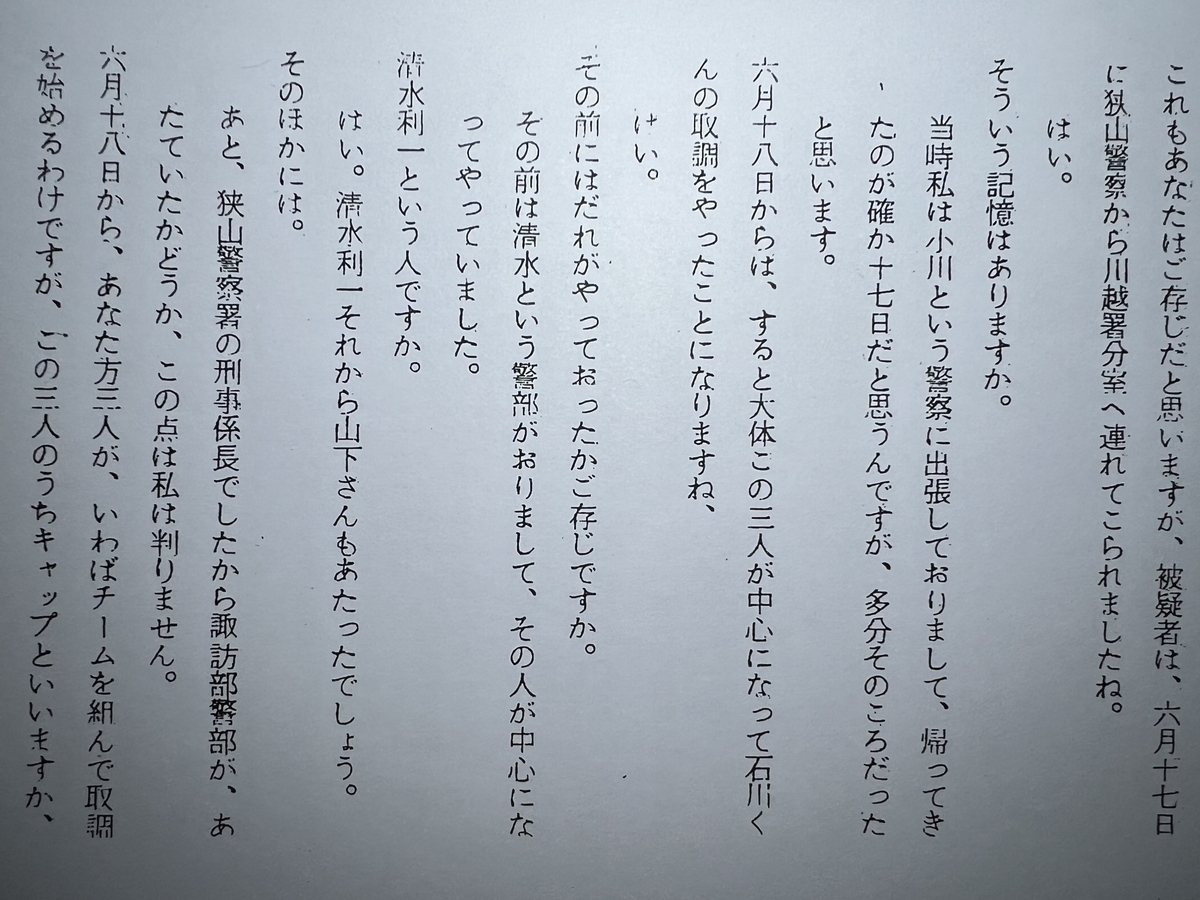 これもあなたはご存じだと思いますが、被疑者は、六月十七日
に狭山警察から川越署分室へ連れてこられましたね。
はい。
そういう記憶はありますか。
当時私は小川という警察に出張しておりまして、帰ってき
たのが確か十七日だと思うんですが、多分そのころだった
と思います。
六月十八日からは、すると大体この三人が中心になって石川く
んの取調をやったことになりますね、
はい。
その前にはだれがやっておったかご存じですか。
その前は清水という警部がおりまして、その人が中心にな
ってやっていました。
清水利一という人ですか。
はい。清水利一それから山下さんもあたったでしょう。
そのほかには。
あと、狭山警察署の刑事係長でしたから諏訪部警部が、あ
たていたかどうか、この点は私は判りません。
六月十八日から、あなた方三人が、いわばチームを組んで取調
を始めるわけですが、この三人のうちキャップといいますか、